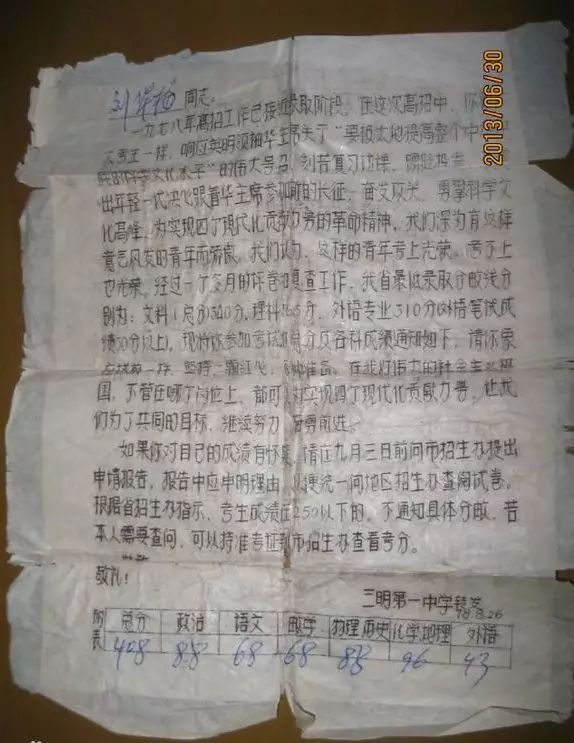 2013/06/30
同志:
一九七八年高招工作已接近录取阶段,在这次高招中,你
考生一样,响应英明领袖华主席关于"要极大地提高整个中
科学文化水平"的伟大号召,刻苦复习功课,踊跃投考
出年轻一代决心跟着华主席参加新的长征,奋发攻关,勇攀科学文
化高峰,为实现四个现代化贡献力量的革命精神。我们深为有这样
意气风发的青年而骄傲。我们认为,这样的青年考上光荣,考不上
也光荣。经过一个多月的评卷和复查工作,我省最低录取分数线分
别为:文科(总分)340分,理科365分,外语专业310分(外语笔试成
绩50分以上)。现将你参加考试的总分及各科成绩通知如下,请你象
一样,坚持一颗红心,准备。在我们伟大的社会主义祖
国,不管在哪个岗位上,都可以对实现四个现代化贡献力量,让我
们为了共同的目标,继续努力,奋勇前进。
如果你对自己的成绩有怀疑,请在九月三日前向市招生办提出
申请报告,报告中应申明理由,以便统一向地区招生办查阅试卷。
根据省招生办指示,考生成绩在250以下的,不通知具体分数,若
本人需要查问,可以持准考证到市招生办查看考分。
敬礼!
三明第一中学转发
78.8.26
附表 总分 政治 语文 数学 物理历史 化学地理 外语
408 88 68 68 88 96 43